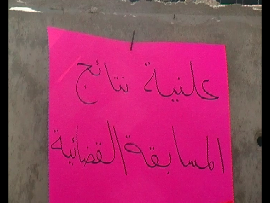 علنية نتائج
المسابقة القضائية